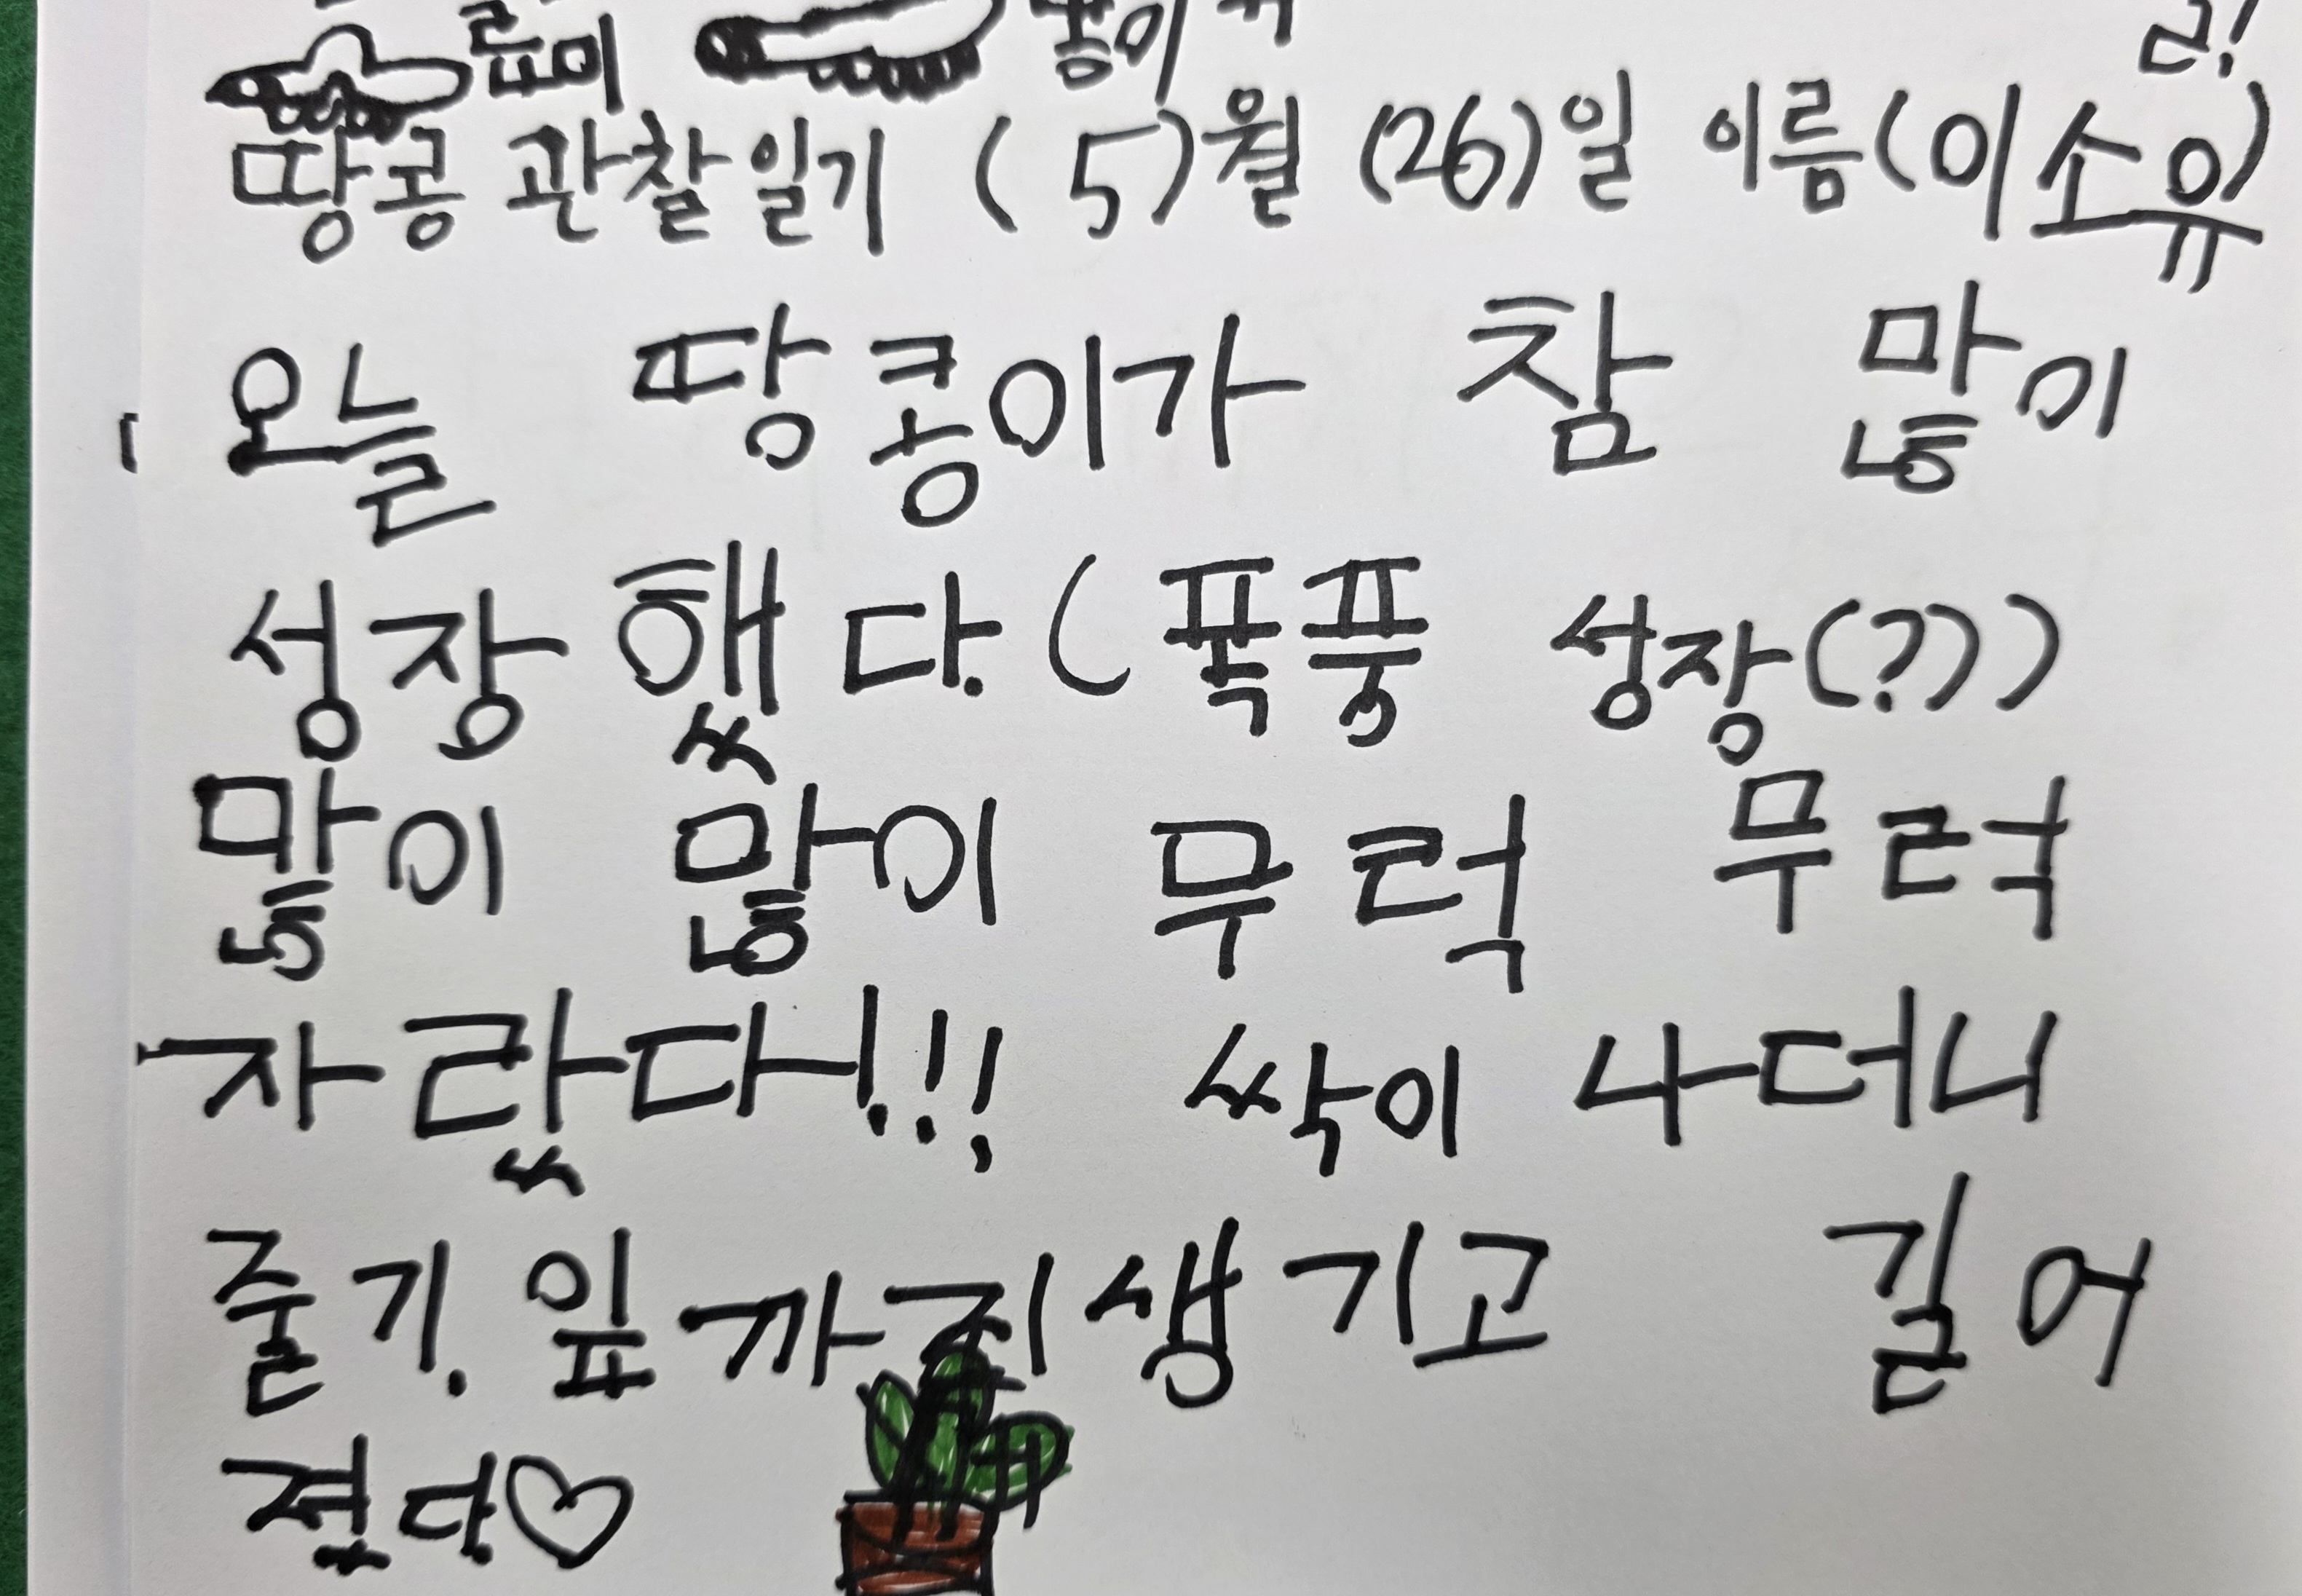 땅콩 관찰일기 ( 5 )월 (26)일 이름(이소유)
오늘 땅콩이가 참 많이
성장했다. (폭풍 성장(?))
많이 많이 무럭 무럭
자랐다!!! 싹이 나더니
줄기. 잎까지 생기고 길어
졌다♡